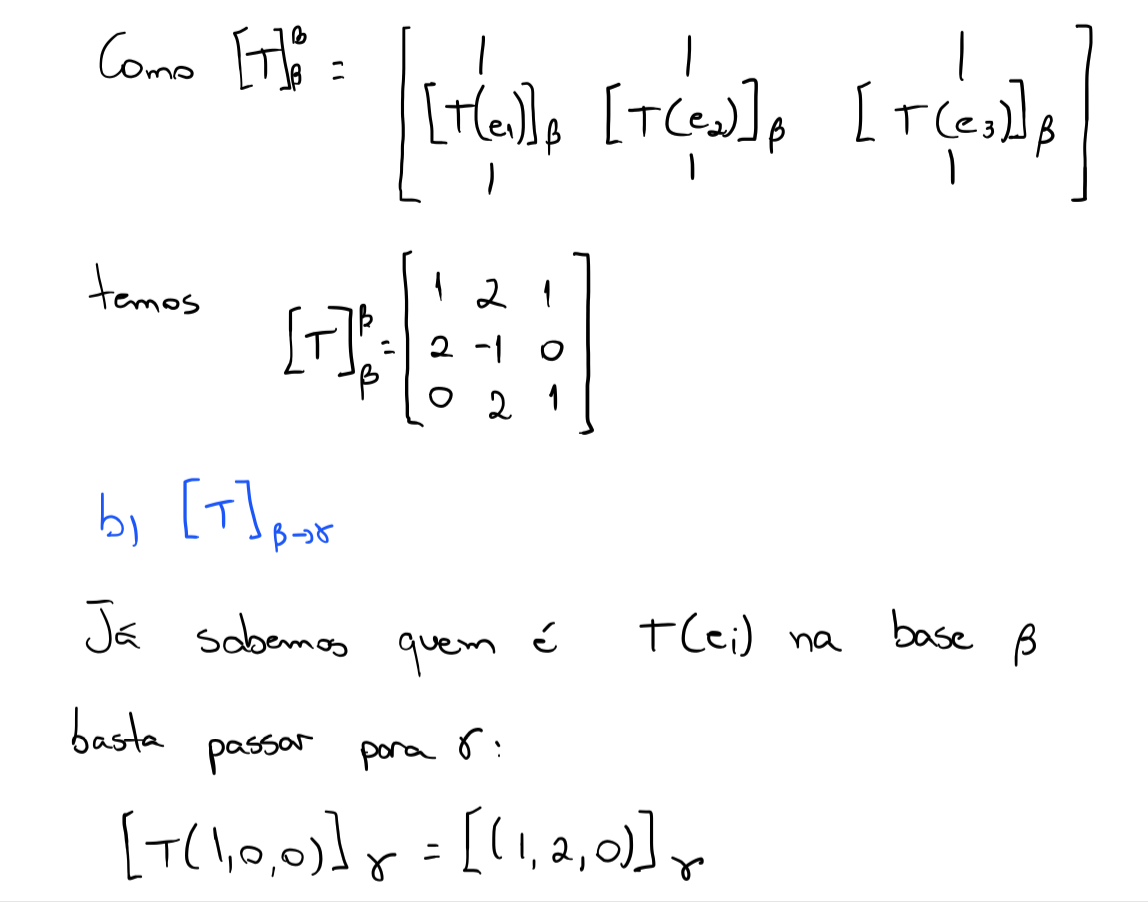 Como [T]^β_β = [ [T(e₁)]_β [T(e₂)]_β [T(e₃)]_β ]
temos [T]^β_β = [ 1 2 1
2 -1 0
0 2 1 ]
b) [T]_β→γ
Já sabemos quem é T(ei) na base β
basta passar para γ:
[T(1,0,0)]_γ = [(1,2,0)]_γ